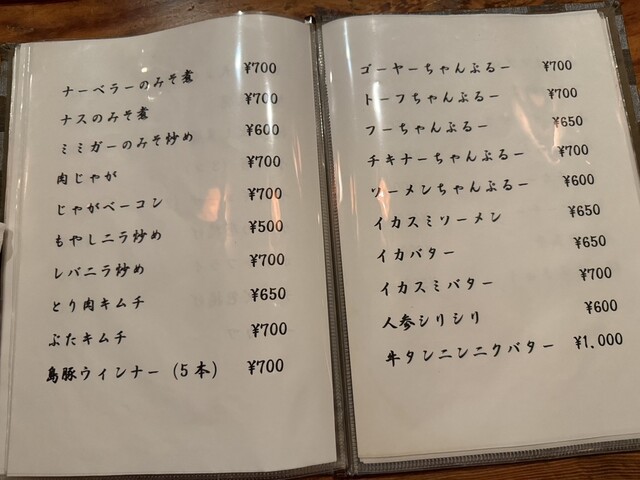 ナーベラーのみそ煮 ¥700
ナスのみそ煮 ¥700
ミミガーのみそ炒め ¥600
肉じゃが ¥700
じゃがベーコン ¥700
もやしニラ炒め ¥500
レバニラ炒め ¥700
とり肉キムチ ¥650
ぶたキムチ ¥700
島豚ウィンナー (5本) ¥700
ゴーヤーちゃんぷるー ¥700
トーフちゃんぷるー ¥700
フーちゃんぷるー ¥650
チキナーちゃんぷるー ¥700
ソーメンちゃんぷるー ¥600
イカスミソーメン ¥650
イカバター ¥650
イカスミバター ¥700
人参シリシリ ¥600
牛タンニンニクバター ¥1,000